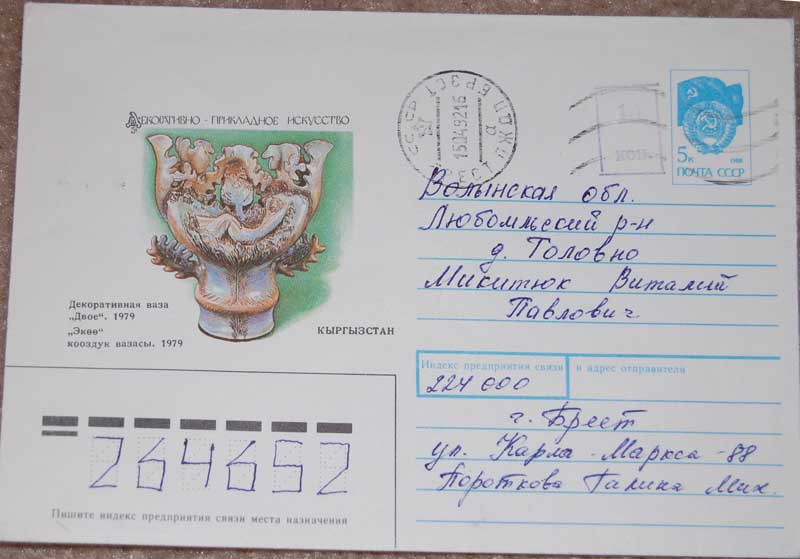 Декоративно - прикладное искусство
Декоративная ваза
„Двое“. 1979
„Экөө“
кооздук вазасы. 1979
КЫРГЫЗСТАН
БРЭСТ
СССР
15 04 92 16
КОП.
5к
1988
ПОЧТА СССР
Волынская обл.
Любомльский р-н
д. Головно
Микитюк Виталий
Павлович
Индекс предприятия связи и адрес отправителя
224 000
г. Брест
ул. Карла-Маркса-88
Пороткова Галина Мих.
264652
Пишите индекс предприятия связи места назначения